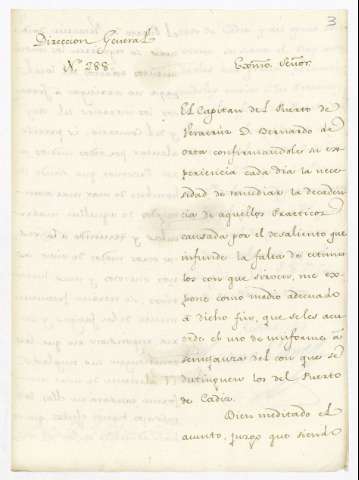 3
Direccion General
N.º 288.
Exmõ. Señor.
El Capitan del Puerto de
Veracruz D. Bernardo de
Orta confirmandole su ex-
periencia cada dia la nece-
sidad de remediar la decaden-
cia de aquellos Practicos
causada por el desaliento que
infunde la falta de estimu-
los con que sirven, me ex-
pone como medio adecuado
a dicho fin, que se les acu-
erde el uso de uniforme á
semejanza del con que se
distinguen los del Puerto
de Cadiz.
Bien meditado el
asunto, juzgo que siendo